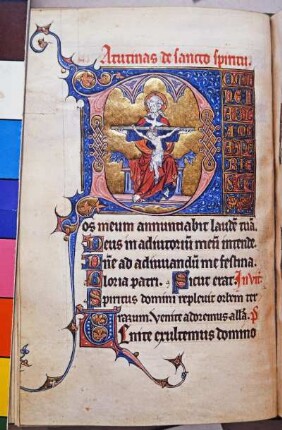 atutinas de sancto spiritu.
os meum annuntiabit laudē tuā.
Deus in adiutoriū meū intende.
Dñe ad adiuuandū me festina.
Gloria patri. Sicut erat. Inuit
Spiritus domini repleuit orbem ter
rarum Venite adoremus allā. p̄
Uenite exultemus domino